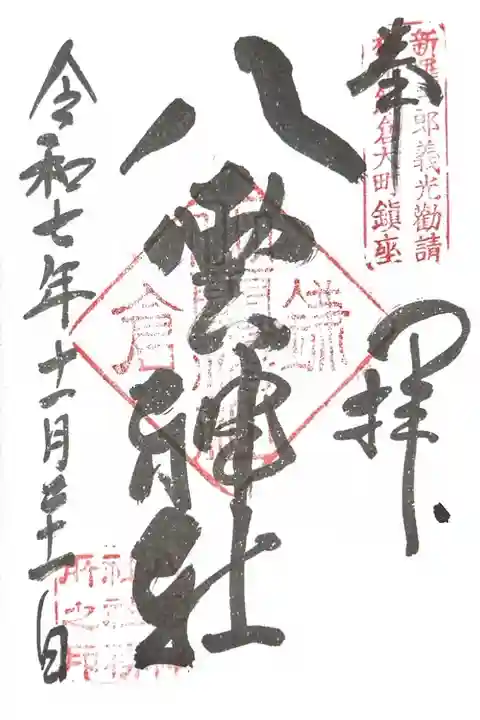 奉拝
新羅三郎義光勧請
相州鎌倉大町鎮座
八雲神社
鎌倉
令和七年十一月二十一日
社務所之印